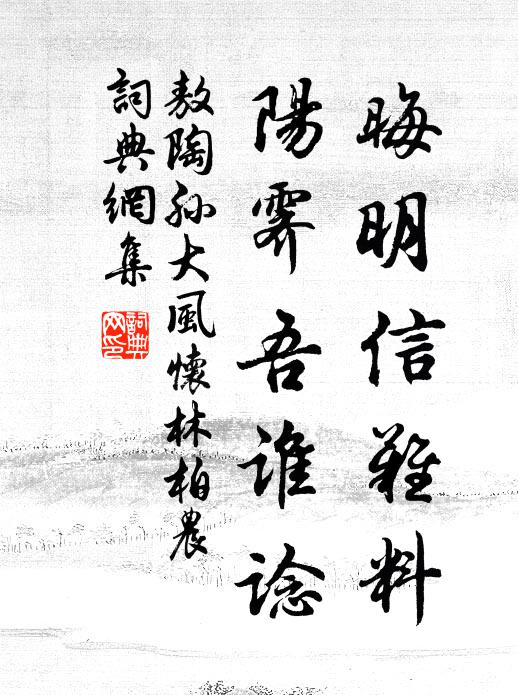 晦明信難料
陽霽吾誰諗
敖陶孫大風懷林柏農
詞典網集
詞典網印